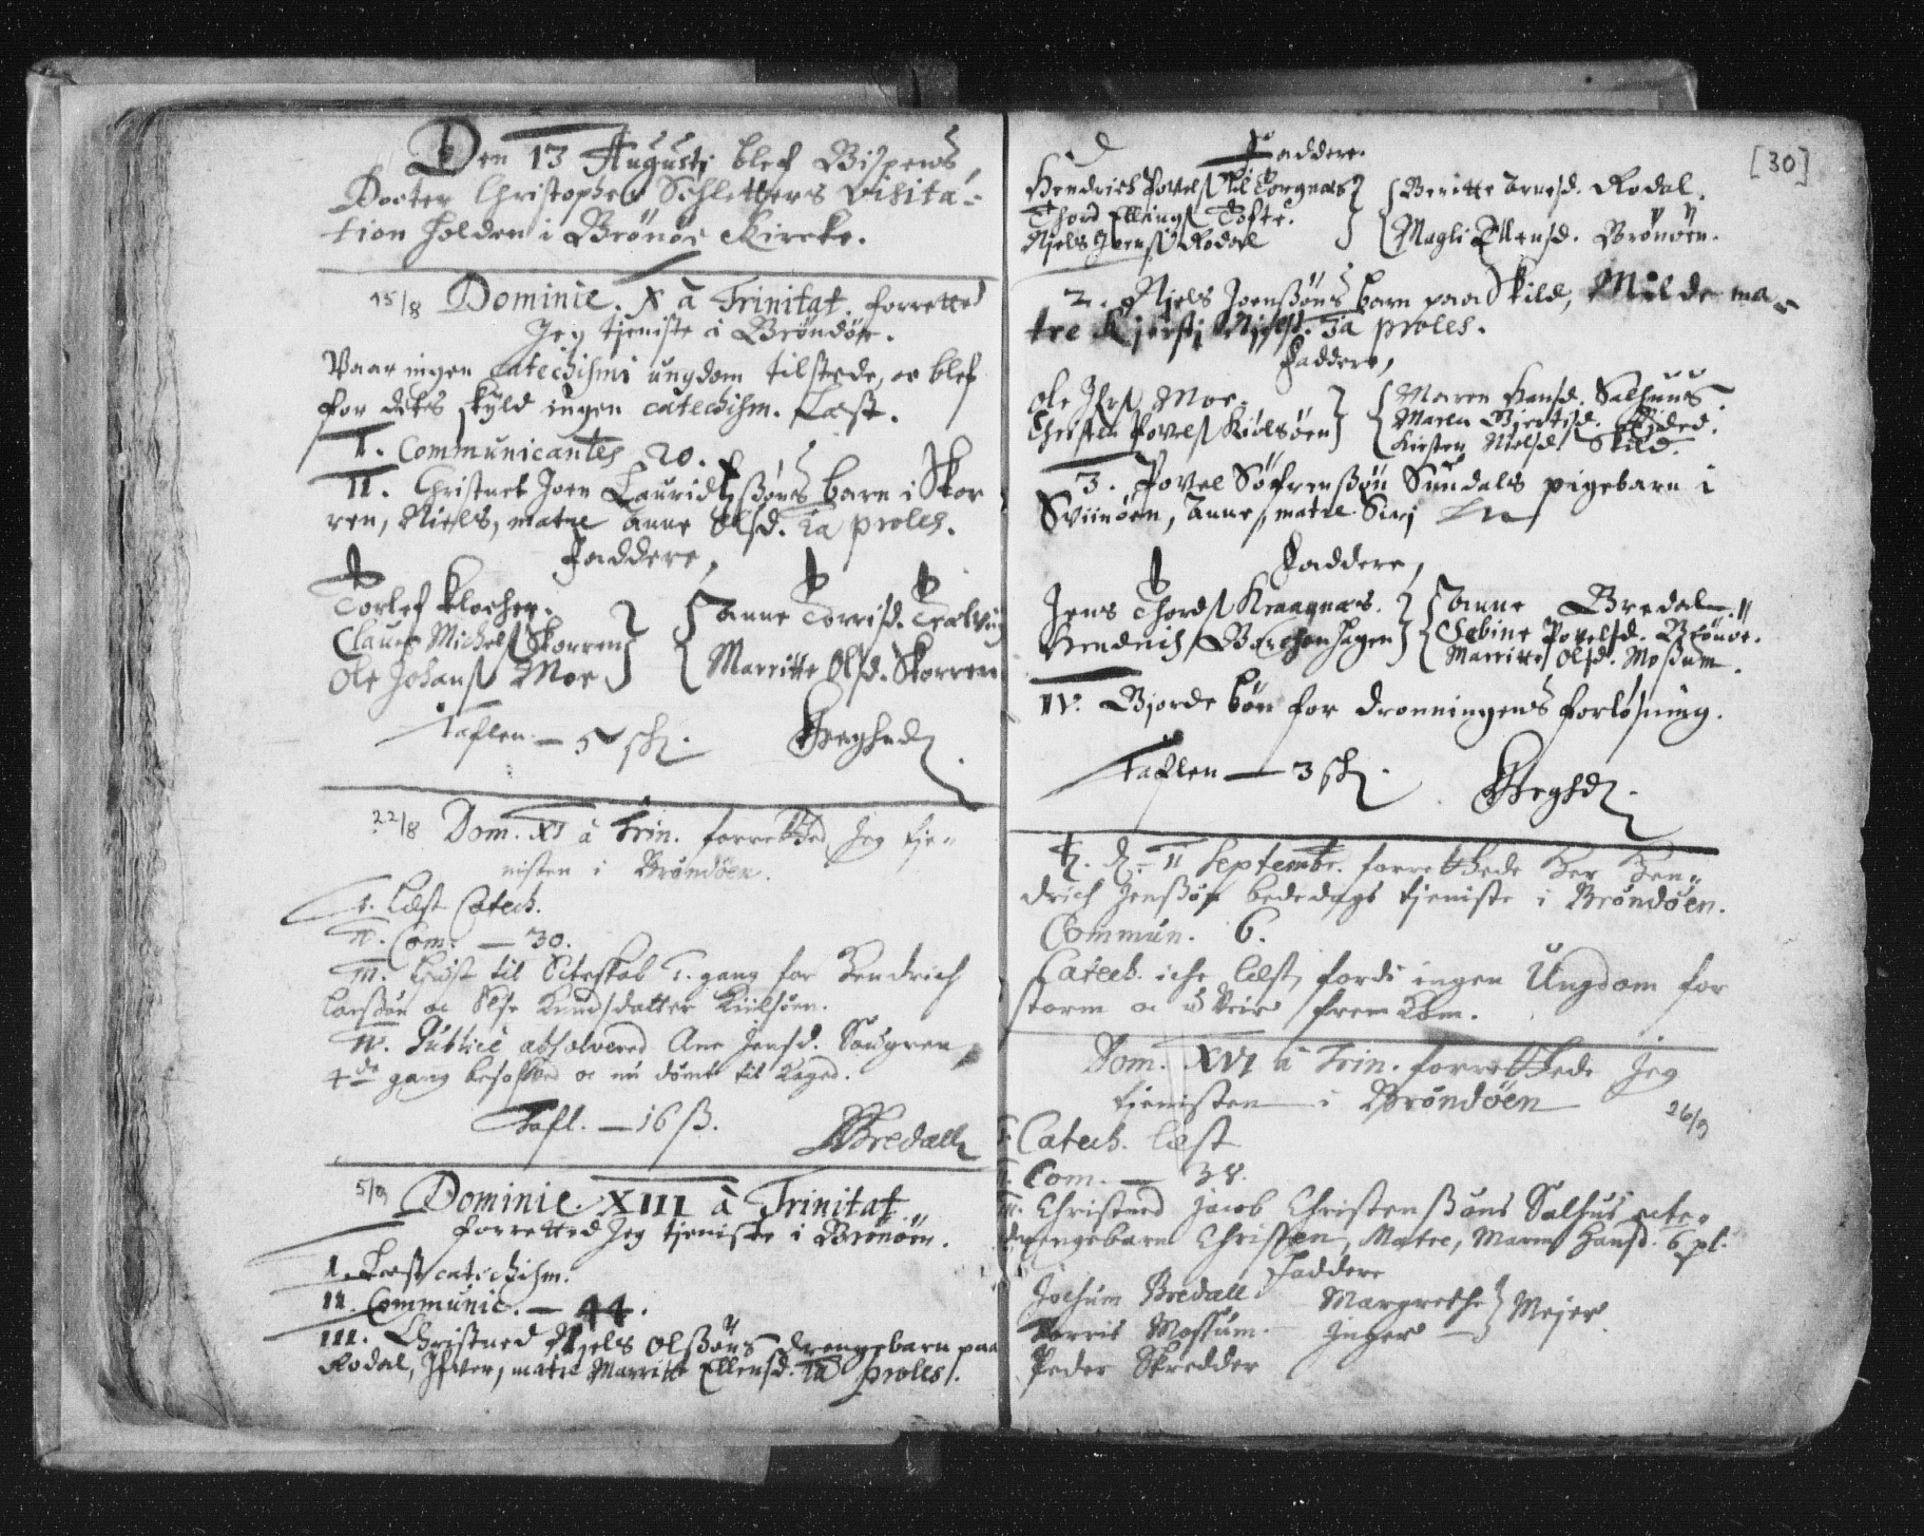 Den 13 Augusti blef Bispens
Docter Christopher Schletters Visita-
tion holden i Brønøe Kircke.
15/8 Dominic. X à Trinitat. forretted
Jeg tjeniste i Brøndøe.
Vaar ingen Catechismi ungdom tilstede, oc blef
for dets skyld ingen catechism. Læst.
I. Communicantes 20.
II. Christnet Joen Lauridtzßøns barn i Skor
ren, Niels, matre Anne Olsd. 1a proles.
Faddere,
Torlef Klocher.
Claus Michels Skorren
Ole Johans Moe
Anne Torrisd. Trælvig
Marritte Olsd. Skorren
Taflen — 5 sk.
22/8 Dom. XI à Trin. forretted Jeg tje-
nisten i Brøndøen.
I. Læst Catech.
II. Com. — 30.
III. Liust til Ecteskab 1. gang for Hendrich
Larßøn oc Else Knudsdatter Kiilsøen.
IV. Publicè absolvered Ane Jensd. Saugren,
4de gang besofved oc nu dømt til Kaged.
Tafl. — 16 ß.
Bredall
5/9 Dominic. XIII à Trinitat
forretted Jeg tjeniste i Brønøen.
I. Læst catechism.
II. Communic. — 44.
III. Christned Njels Olßøns drengebarn paa
Rodal, Ifver, matre Marritte Ellensd. 1a proles.
[30]
Faddere.
Hendrich Povels til Torgnæs
Thord Ellings Tofte.
Njels Joens Rodal
Beritte Arnesd. Rodal.
Magli Ellensd. Brønøen.
2. Njels Joenßøns barn paa Skild, Milde ma-
tre Kjersti Nielsd. 3a proles.
Faddere,
Ole Moe.
Christen Povels Kiølsøen
Maren Hansd. Salhuus.
Maren
Kirsten Nielsd. Skild.
3. Povel Søfrenßøn Sundals pigebarn i
Sviinøen, Anne, matre Siri
Faddere,
Jens Thords Kraagnæs.
Hendrich Borchenhagen
Anne Bredal.
Sebine Povelsd. Brønøe.
Marritte Olsd. Moßum.
IV. Gjorde bøn for dronningens forløsning.
Taflen — 3 sk.
11 Septembr. forrettede Her Hen-
drich Jenßøn bededags tjeniste i Brøndøen.
Commun. 6.
Catech. iche læst, fordi ingen Ungdom for
storm oc u-Veir frem Kom.
Dom. XVI à Trin. forrettede Jeg
tjenisten i Brøndøen 26/9
I. Catech. læst
II. Com. — 38.
III. Christned Jacob Christenßøns Salhus ecte-
drengebarn Christen, Matre, Maren Hansd. 6 pl.
Faddere
Jochum Bredall
Torris Mossum.
Peder Skredder
Margrethe
Inger —
Mejer